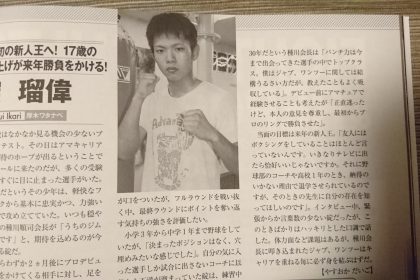 初の新人王へ! 17歳の
上げが来年勝負をかける!
瑠偉
ui Ikari
厚木ワタナベ
はなかなか見る機会の少ないプ
テスト。その日はアマキャリア
待のホープが出るということで
ールに来たのだが、多くの受験
すぐに目に止まった選手がいた。
だというその少年は、軽快なフ
クから基本に忠実かつ、力強い
で攻め立てていた。いつも穏
の種川順司会長が「うちのジム
です」と、期待を込めるのが今
る錠だった。
らわずか2ヵ月後にプロデビ
をかけてくる相手に対し、足を
が目をついたが、フルラウンドを戦い抜
く中、最終ラウンドにポイントを奪い返
す気持ちの強さを評価したい。
小学3年から中学1年まで野球をして
いたが、「決まったポジションはなく、穴
埋めみたいな感じでした」自分の気に入
った選手しか試合に出さないコーチの
30年だという種川会長は「パンチ力は今
まで出会ってきた選手の中でトップクラ
ス。僕はジャブ、ワンツーに関しては結
構うるさい方だが、教えたことをもよく吸
収している」。デビュー前にアマチュアで
経験させることも考えたが「正直迷った
けど、本人の意見を尊重し、最初からプ
ロのリングで勝負させた」
当面の目標は来年の新人王。「友人には
ボクシングをしていることはほとんど言
っていないんです。いきなりテレビに出
たら恰好いいじゃないですか。それに野
球部のコーチや高校1年のとき、納得の
いかない理由で退学させられているので
すが、そのときの先生に自分の存在を知
ってほしいんです」。インタビュー、緊
張からか言葉数の少ない錠だったが、こ
のときばかりはハッキリとした口調で話
した。体力面など課題はあるが、種川会
長に叩き込まれたジャブ、ワンツーはキ
ャリアを重ねる毎に必ず身を結ぶはずだ。
【やすおか だいご】